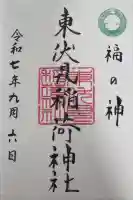 福の神
東伏見稲荷神社
令和七年九月六日